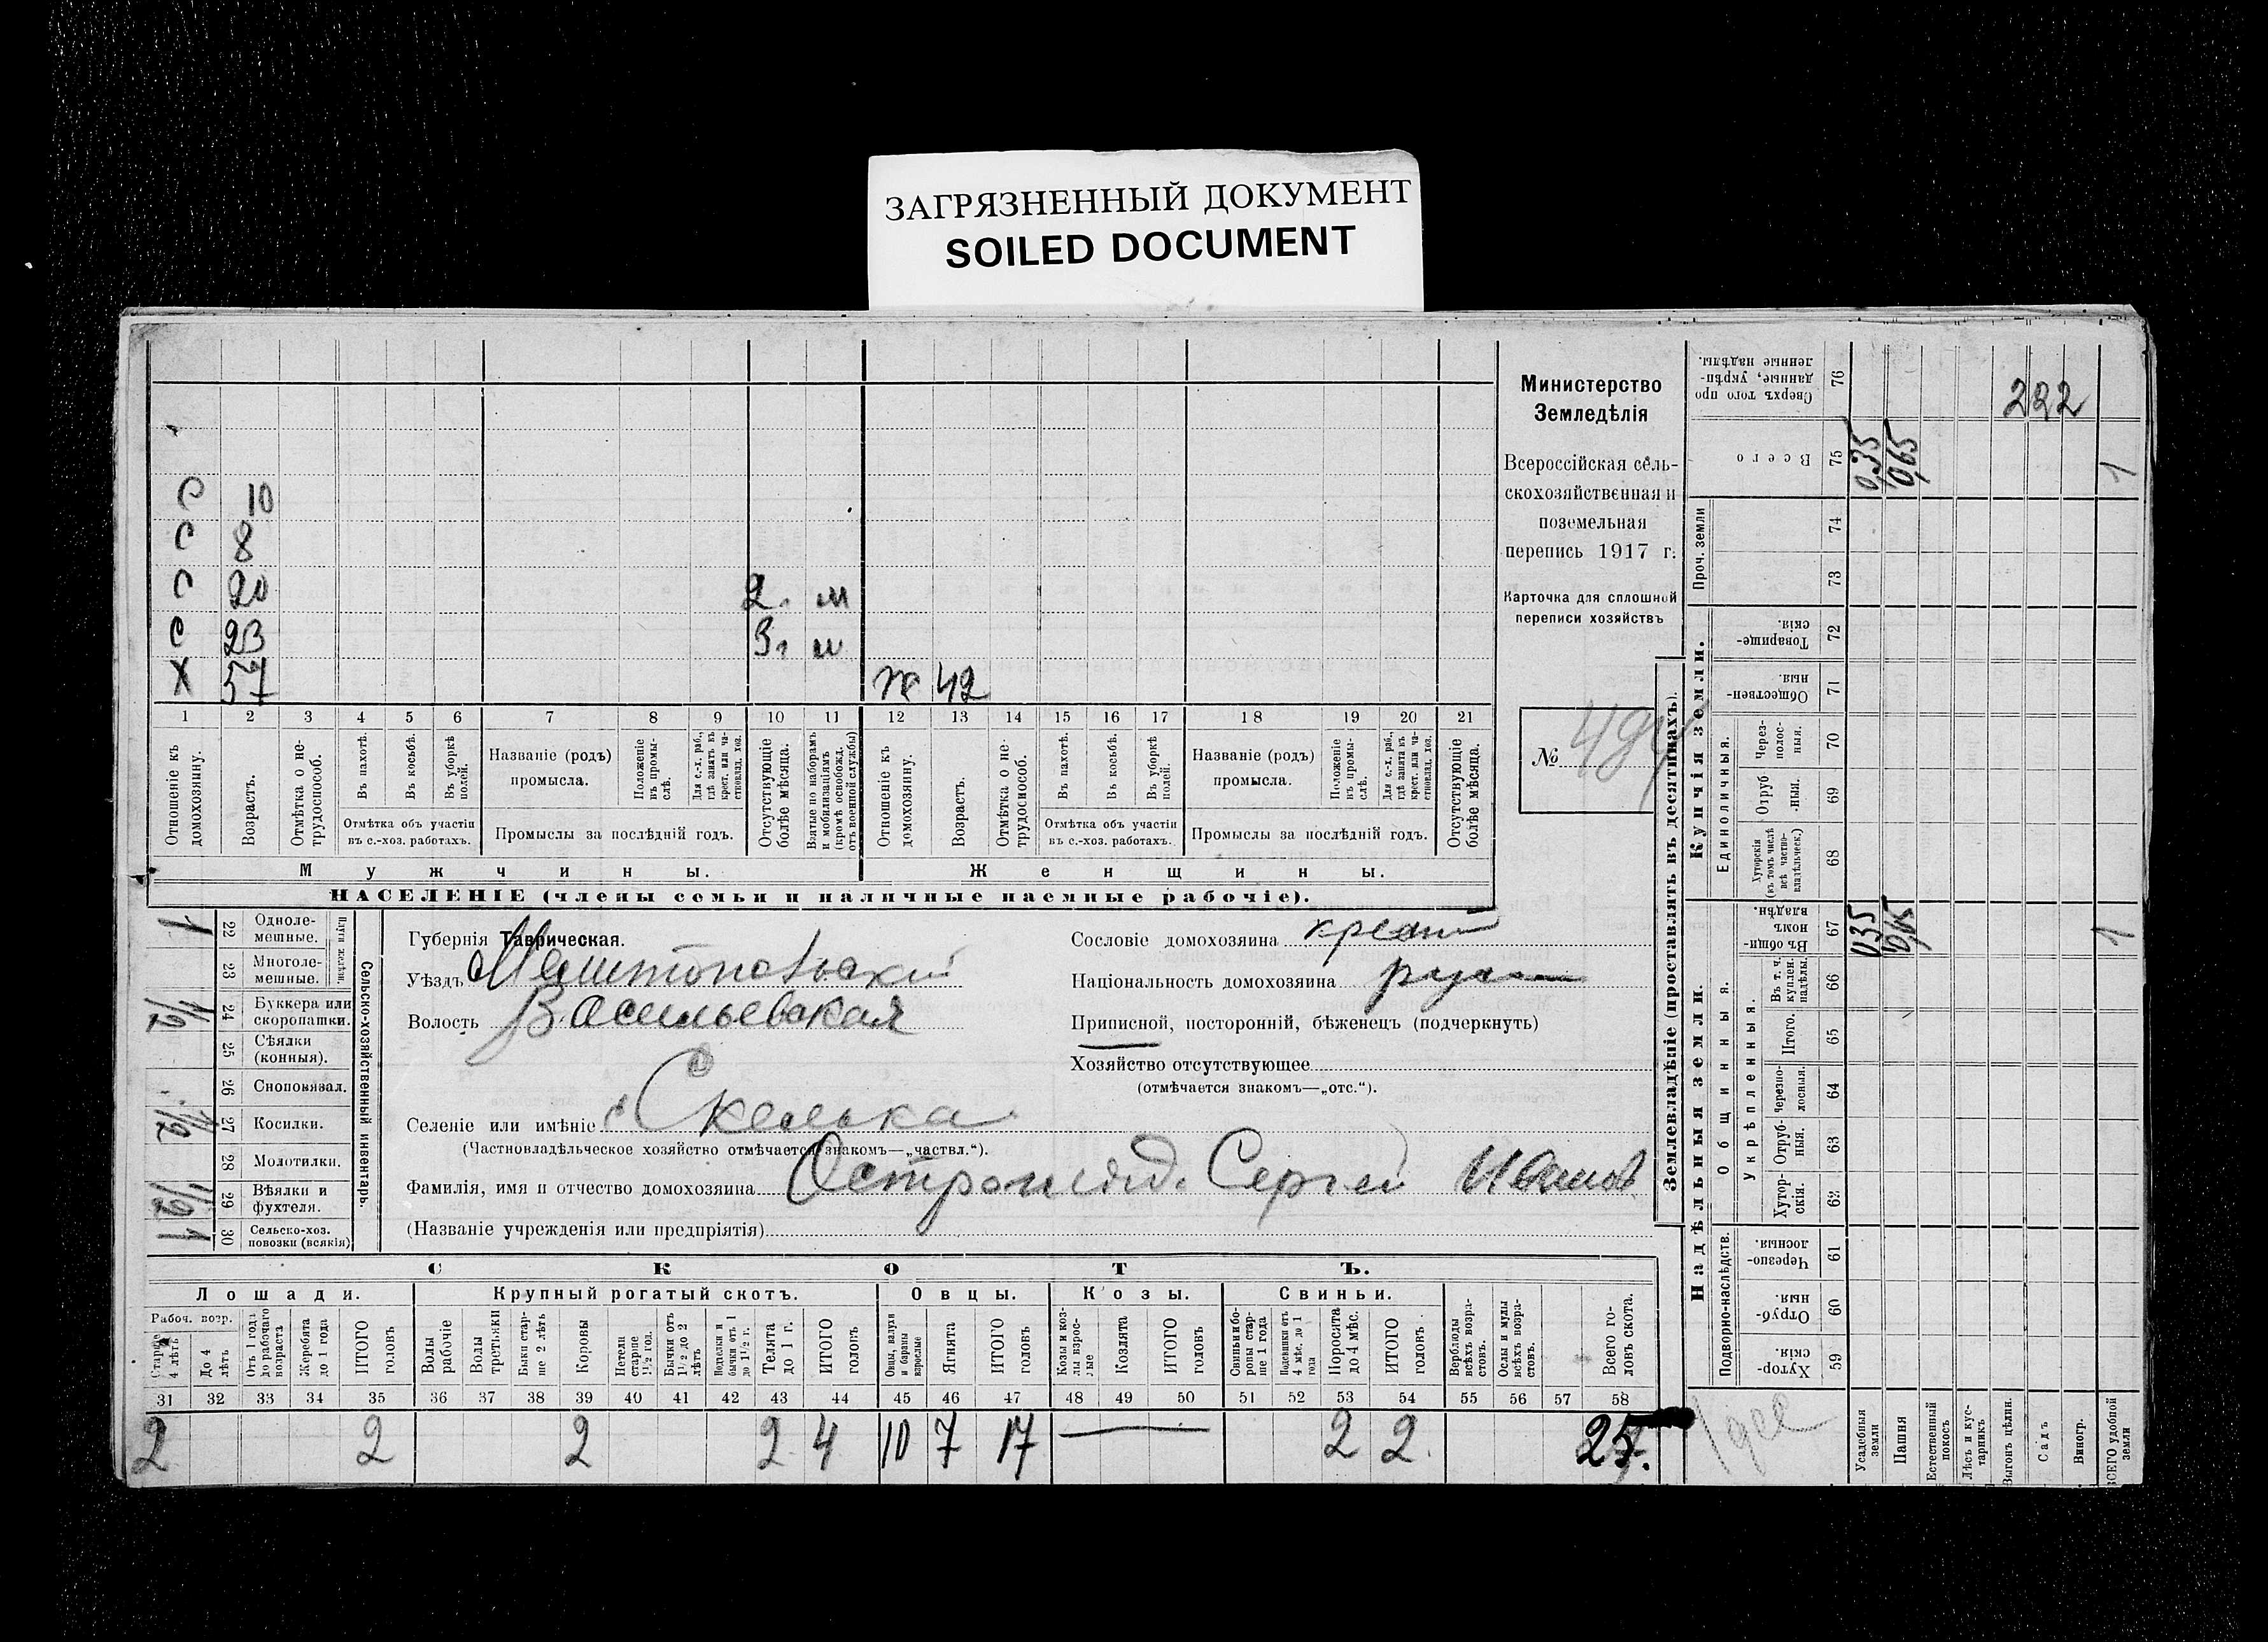 ЗАГРЯЗНЕННЫЙ ДОКУМЕНТ
SOILED DOCUMENT
С 10
С 8
С 20 2. м
С 23 3г м
Х 57 ж 42
1 2 3 4 5 6 7 8 9 10 11 12 13 14 15 16 17 18 19 20 21
Отношеніе къ домохозяину.
Возрастъ.
Отмѣтка о не-трудоспособ.
Въ пахотѣ.
Въ косьбѣ.
Въ уборкѣ полей.
Отмѣтка объ участіи
въ с.-хоз. работахъ.
Названіе (родъ)
промысла.
Положеніе въ промы-слѣ.
Для с.-х. раб., гдѣ занятъ въ крест. или ча-стновлад. хоз.
Промыслы за послѣдній годъ.
Отсутствующіе болѣе мѣсяца.
Взятые по наборамъ и мобилизаціямъ (кромѣ освобожд. отъ военной службы)
Отношеніе къ домохозяину.
Возрастъ.
Отмѣтка о не-трудоспособ.
Въ пахотѣ.
Въ косьбѣ.
Въ уборкѣ полей.
Отмѣтка объ участіи
въ с.-хоз. работахъ.
Названіе (родъ)
промысла.
Положеніе въ промы-слѣ.
Для с.-х. раб., гдѣ занята въ крест. или ча-стновлад. хоз.
Промыслы за послѣдній годъ.
Отсутствующіе болѣе мѣсяца.
Мужчины. Женщины.
НАСЕЛЕНІЕ (члены семьи и наличные наемные рабочіе).
Министерство
Земледѣлія
Всероссійская сель-
скохозяйственная и
поземельная
перепись 1917 г.
Карточка для сплошной
переписи хозяйствъ
№ 494
Сельско-хозяйственный инвентарь.
Плуги желѣзн.
1 22 Одноле-мешные.
23 Многоле-мешные.
1/2 24 Буккера или скоропашки.
25 Сѣялки (конныя).
26 Сноповязал.
1/2 27 Косилки.
28 Молотилки.
1/2 29 Вѣялки и фухтеля.
1 30 Сельско-хоз. повозки (всякія)
Губернія Таврическая.
Уѣздъ Мелитопольскій
Волость Васильевская
Селеніе или имѣніе с Скелька
(Частновладѣльческое хозяйство отмѣчается знакомъ—„частвл.“).
Фамилія, имя и отчество домохозяина Острогляд. Сергей Иванов
(Названіе учрежденія или предпріятія)
Сословіе домохозяина крест
Національность домохозяина рус
Приписной, посторонній, бѣженецъ (подчеркнуть)
Хозяйство отсутствующее
(отмѣчается знакомъ—„отс.“).
СКОТЪ.
Лошади. Крупный рогатый скотъ. Овцы. Козы. Свиньи.
Рабоч. возр.
Старше 4 лѣтъ
До 4 лѣтъ
Отъ 1 года до рабочаго возраста
Жеребята до 1 года
ИТОГО головъ
Волы рабочіе
Волы третьяки
Быки стар-ше 2 лѣтъ
Коровы
Нетели старше 1 1/2 год.
Бычки отъ 1 1/2 до 2 лѣтъ
Подтелки и бычки отъ 1 до 1 1/2 г.
Телята до 1 г.
ИТОГО головъ
Овцы, валухи и бараны взрослые
Ягнята
ИТОГО головъ
Козы и коз-лы взрос-лые
Козлята
ИТОГО головъ
Свиньи бо-ровы стар-ше 1 года
Подсвинки отъ 4 мѣс. до 1 года
Поросята до 4 мѣс.
ИТОГО головъ
Верблюды всѣхъ возра-стовъ.
Ослы и мулы всѣхъ возра-стовъ.
Всего го-ловъ скота.
31 32 33 34 35 36 37 38 39 40 41 42 43 44 45 46 47 48 49 50 51 52 53 54 55 56 57 58
2 2 2 2 4 10 7 17 2 2 25.
Землевладѣніе (проставлять въ десятинахъ).
Надѣльныя земли. Купчія земли. Проч. земли
Подворно-наслѣдств. Общинныя. Укрѣпленныя. Единоличныя.
Сверхъ того про данные, укрѣп-ленные надѣлы. 76
222
Всего 75 0,35 0,65 1
74
73
Товарище-скія. 72
Обществен-ныя. 71
Через-полос-ныя. 70
Отруб-ныя. 69
Хуторскія (въ томъ числѣ всѣ частно-владѣльческ.) 68
Въ общи-номъ владѣн. 67 0,35 0,65 1
Въ т. ч. куплен. надѣлы. 66
Итого. 65
Черезпо-лосныя. 64
Отруб-ныя. 63
Хутор-скія. 62
Черезпо-лосныя. 61
Отруб-ныя. 60
Хутор-скія. 59
Усадебныя земли
Пашня
Естественный покосъ
Лѣсъ и кус-тарникъ
Выгонъ цѣлин.
Садъ
Виногр.
ВСЕГО удобной земли